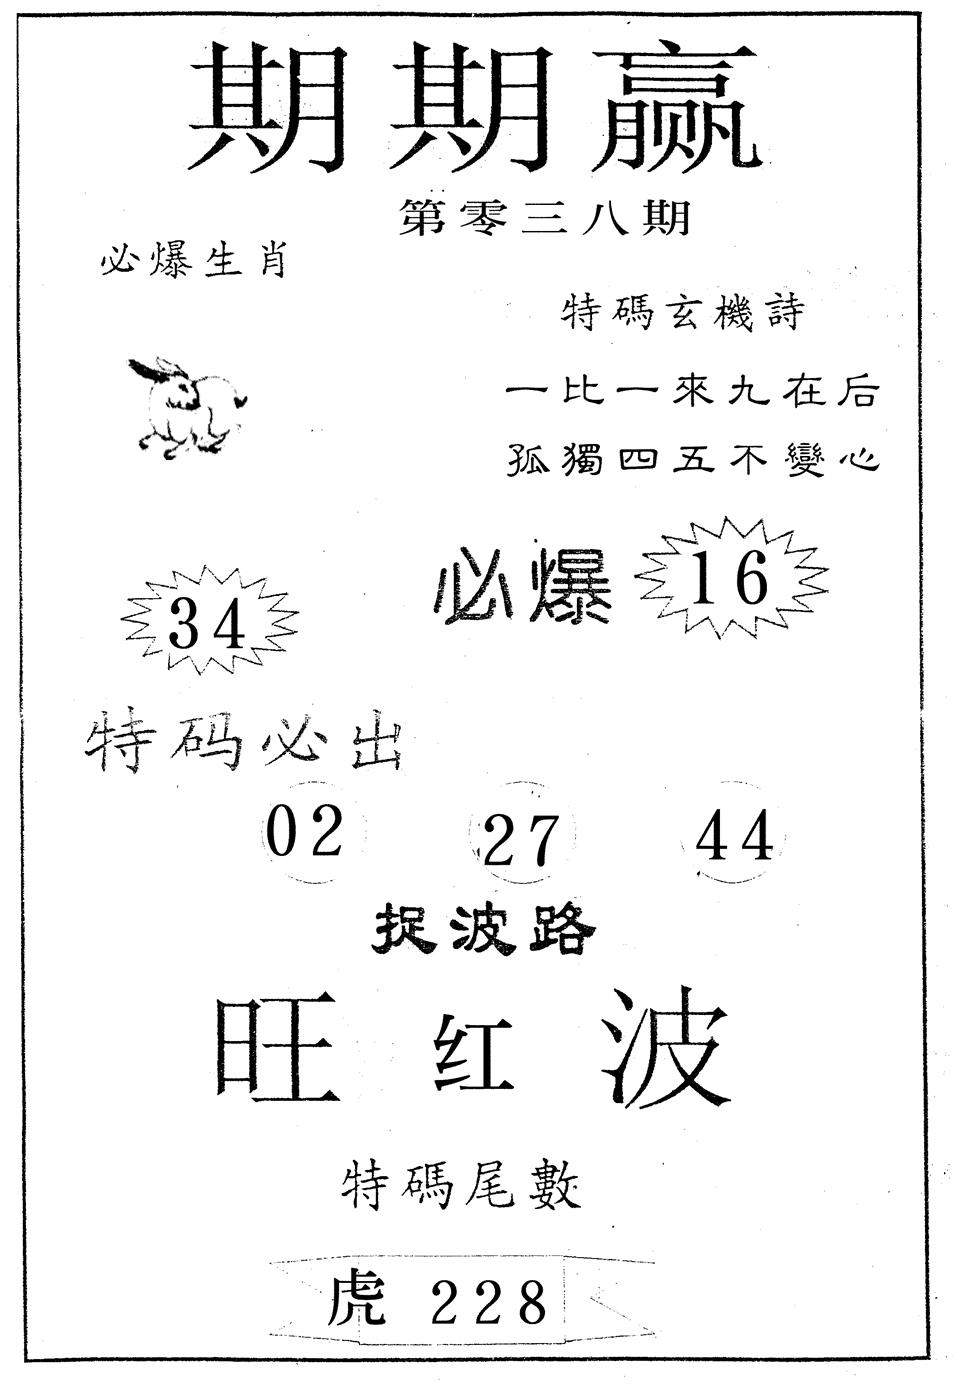 期期赢
第零三八期
必爆生肖
特碼玄機詩
一比一來九在后
孤獨四五不變心
必爆 16
34
特码必出
02 27 44
捉波路
旺红波
特碼尾數
虎 228